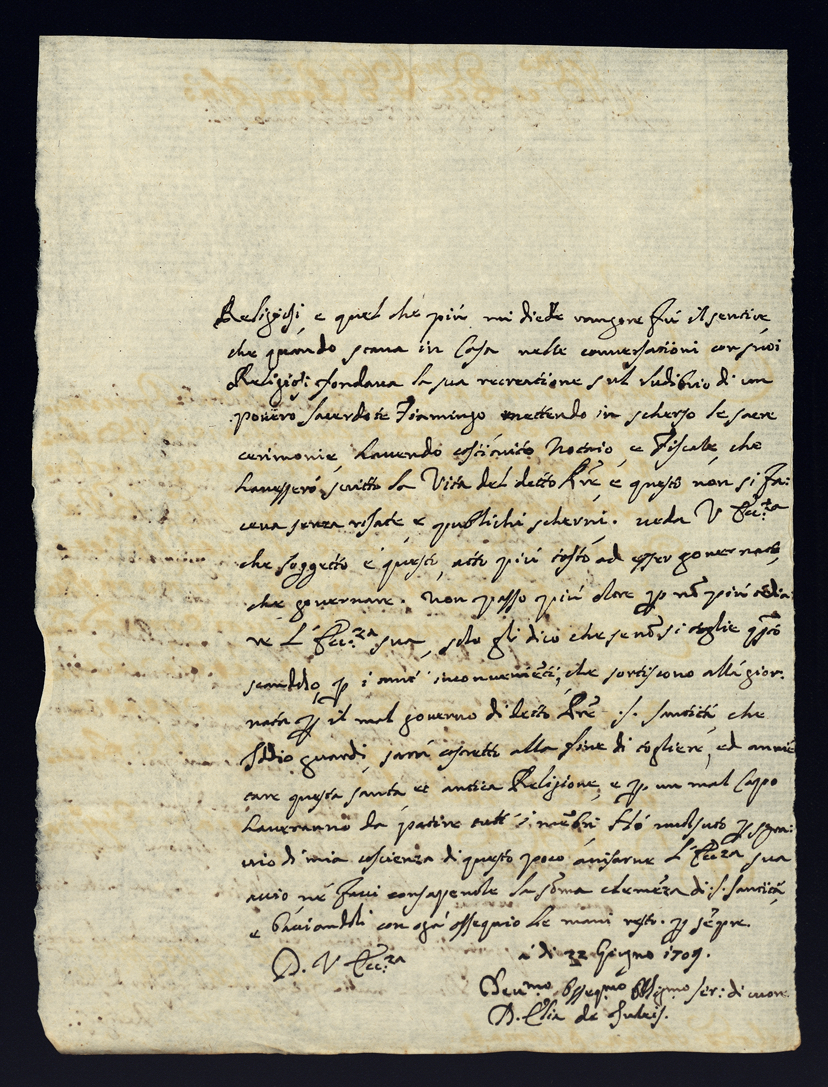 Religiosi e quel che più mi diede rancore fù il sentire
che quando stava in Casa nelle conversationi con suoi
Religiosi fondava la sua recreatione sul ludibrio di un
povero sacerdote Fiamingo mettendo in scherso le sacre
cerimonie, havendo costituito Notaio, e Fiscale, che
havessero scritto la Vita del detto Pre, e questo non si fa:
ceva senza risate, e publichi scherni. veda V Ecc:za
che soggetto è questo, atto più tosto ad esser governato,
che governare. Non passo più oltre p no più tedia:
re L'Ecc:za sua, solo gli dico che se nō si toglie qsto
scandolo, p i tanti inconvenieti, che sortiscono alla gior:
nata p il mal governo di detto Pre S. Santità che
Iddio guardi, sarà costretto alla fine di togliere, ed annie
tare questa santa et antica Religione, e p un mal Capo
haveranno da patire tutt'i mēbri. Hò voluto p
di mia coscienza di questo poco avisarne L'Ecc:za sua
acciò ne facci consapevole la sōma clemēza di S. Santità,
e baciandoli con ogni ossequio le mani resto p sēpre.
D. V Ecc:za
a dì 22 Giugno 1709.
Devmo Osseqmo Obligmo ser: di cuore
D. Elia de